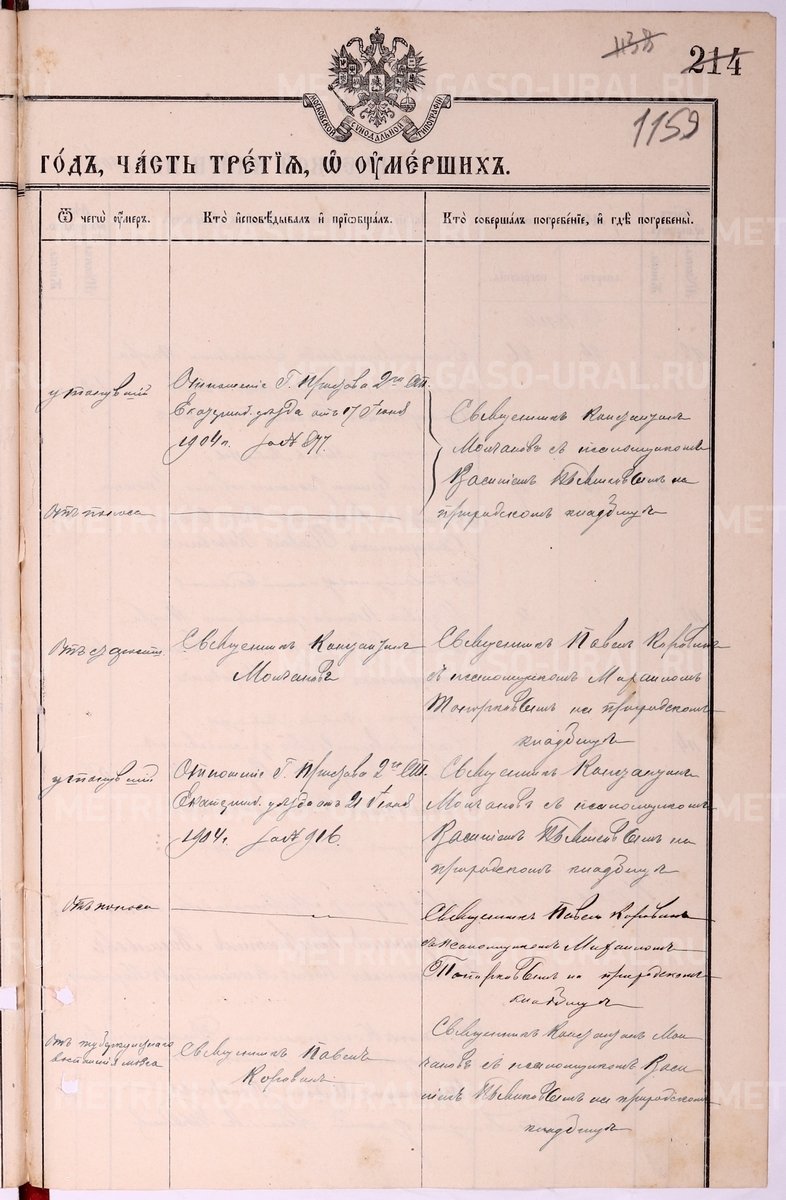 1138
214
1159
МОСКОВСКОЙ СѴНОДАЛЬНОЙ ТИПОГРАФІИ
ГО́ДЪ, ЧА́СТЬ ТРЕ́ТІѦ, Ѡ҆ ОУ҆МЕ́РШИХЪ.
Ѿ чегѡ̀ оу҆́меръ.
Кто̀ и҆сповѣ́дывалъ и҆ прїѡбща́лъ.
Кто̀ соверша́лъ погребе́нїе, и҆ гдѣ̀ погребены̀.
утонувшій
Отношеніе Г. Пристава 2го Ст.
Екатеринб. уѣзда отъ 17 Іюня
1904 г. за № 877.
Священникъ Константинъ
Молчановъ съ псаломщикомъ
Василіемъ на
городскомъ кладбищѣ
Отъ поноса
Отъ старости
Священникъ Константинъ
Молчановъ
Священникъ Павелъ Коровинъ
съ псаломщикомъ Михаиломъ
Топорковымъ на городскомъ
кладбищѣ
утонувшій
Отношеніе Г. Пристава 2го Ст.
Екатеринб. уѣзда отъ 21 Іюня
1904 г. за № 916
Священникъ Константинъ
Молчановъ съ псаломщикомъ
Василіемъ на
городскомъ кладбищѣ
Отъ поноса
Священникъ Павелъ Коровинъ
съ псаломщикомъ Михаиломъ
Топорковымъ на городскомъ
кладбищѣ
Отъ туберкулезнаго
воспаленія мозга
Священникъ Павелъ
Коровинъ
Священникъ Константинъ Мол
чановъ съ псаломщикомъ Васи
ліемъ на городскомъ
кладбищѣ